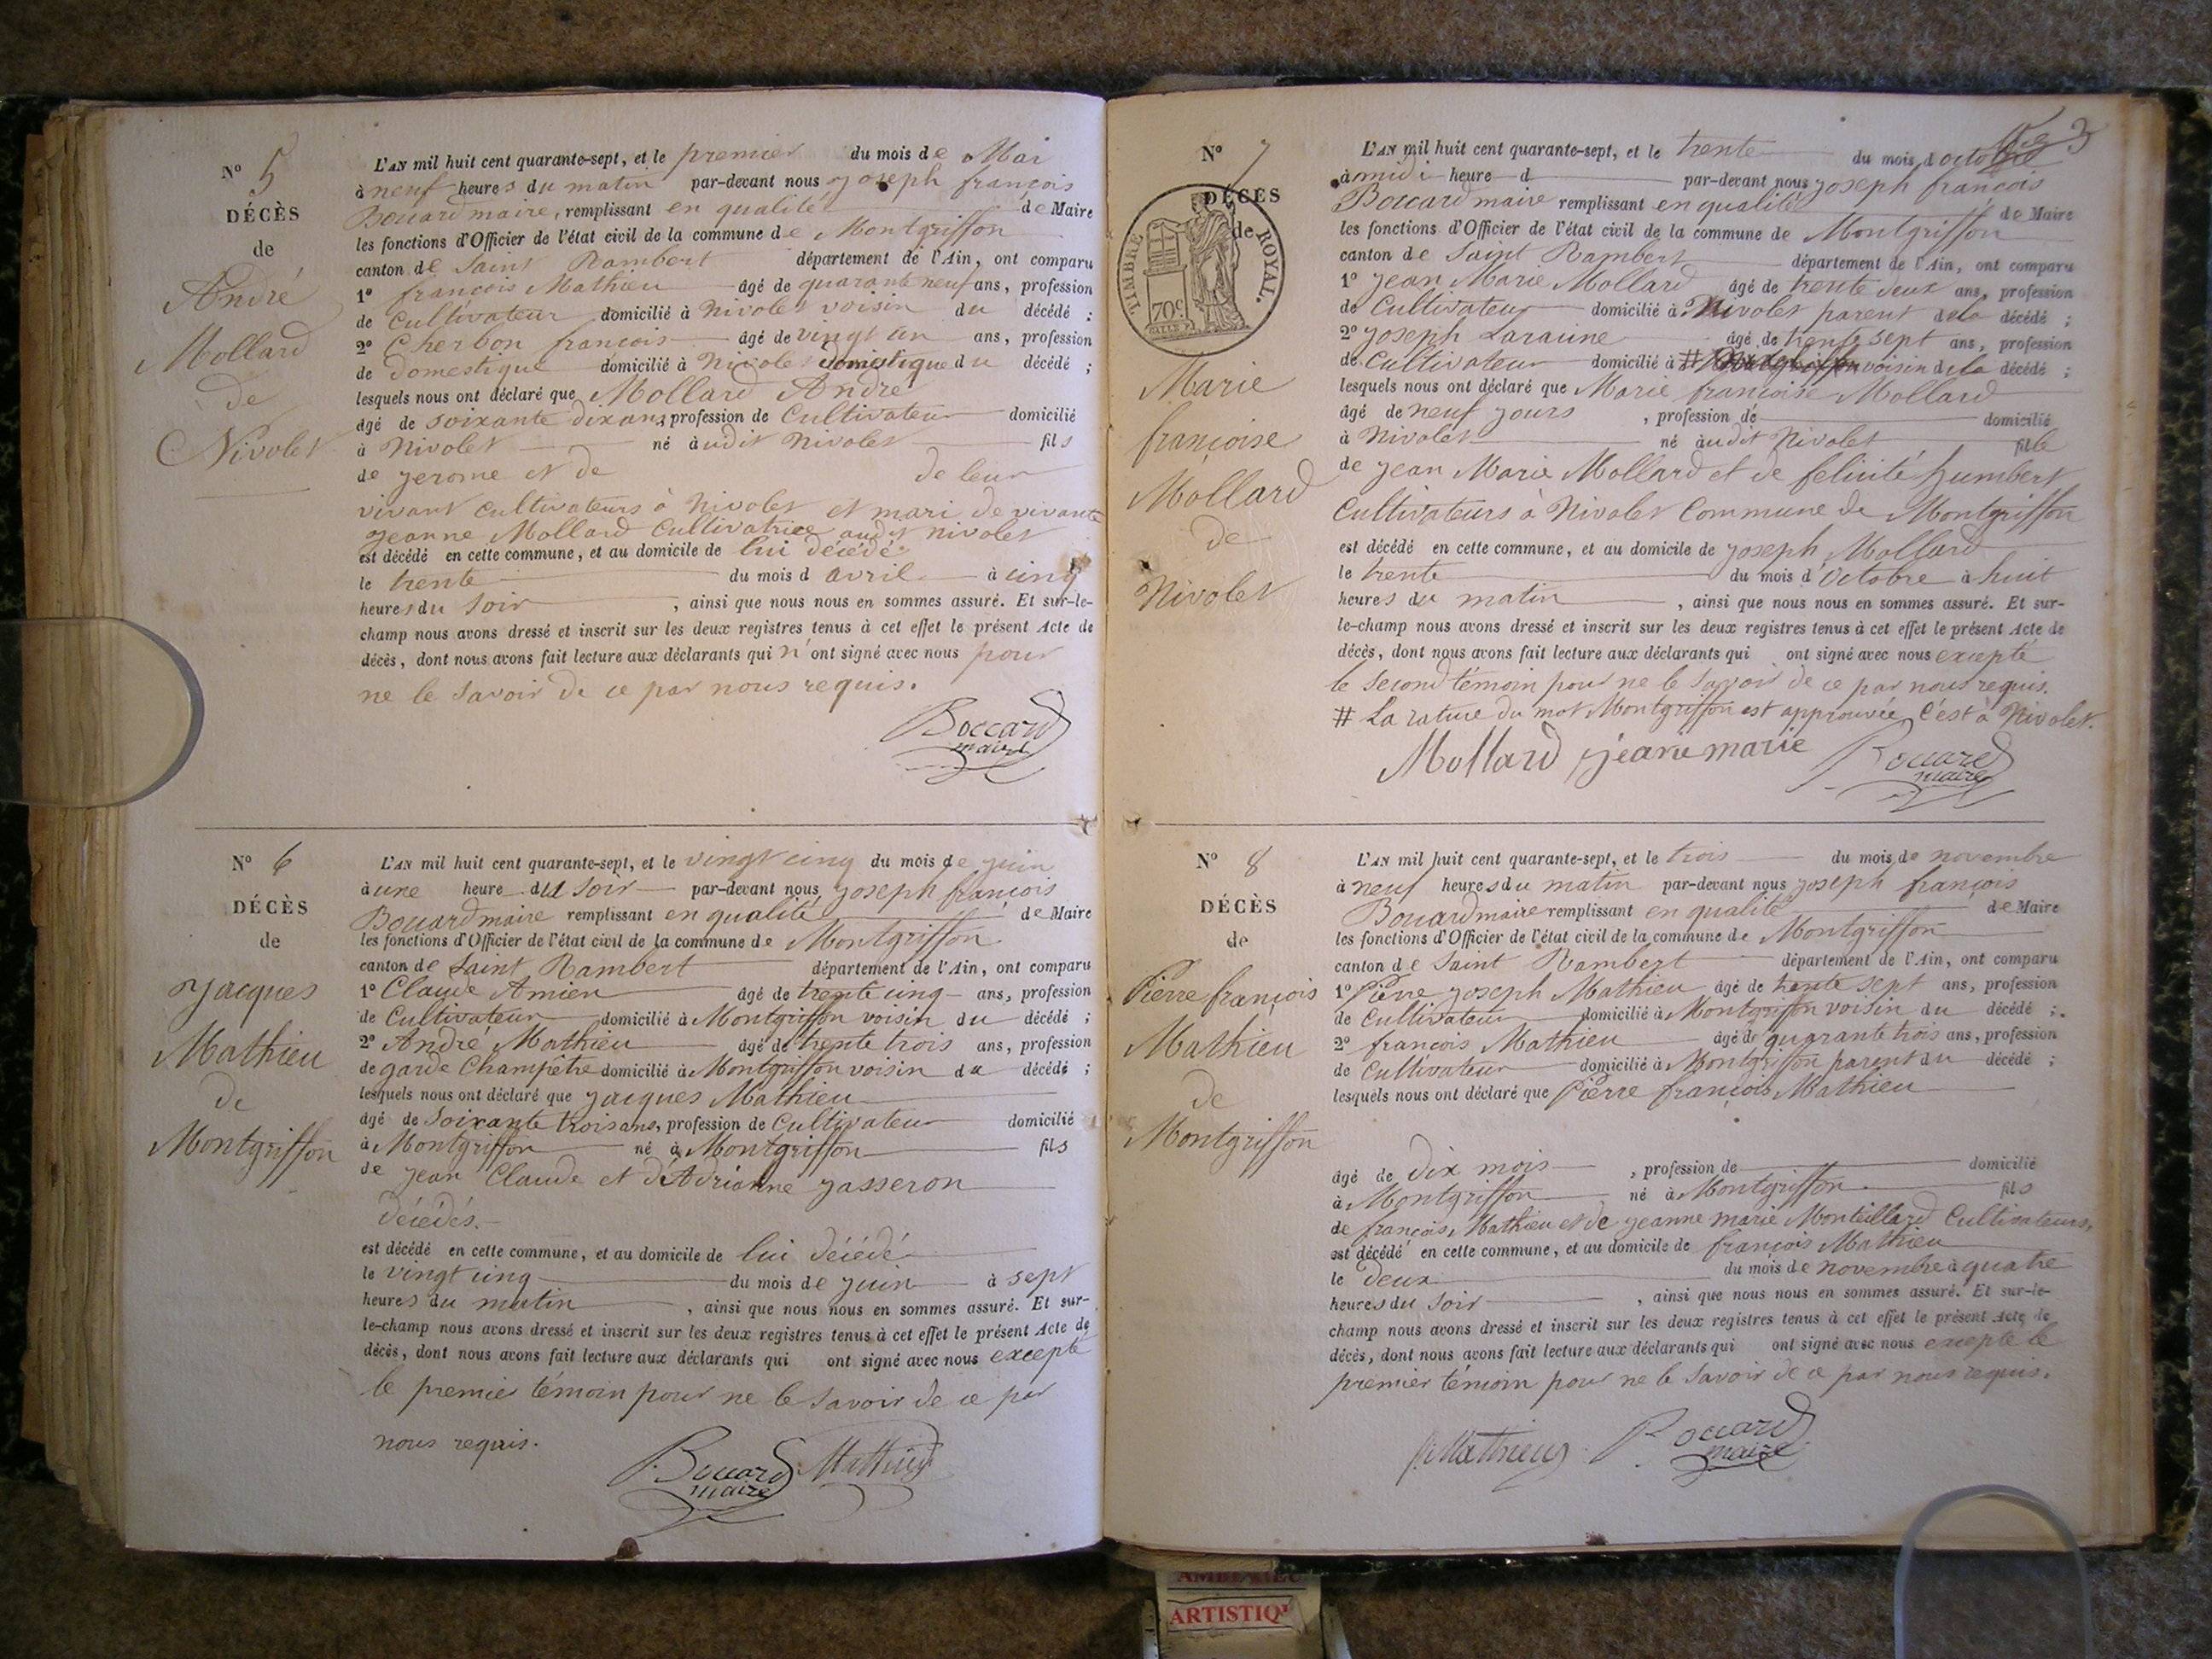 N° 5
DÉCÈS
de
André
Mollard
de
Nivolet
L'AN mil huit cent quarante-sept, et le premier du mois de Mai
à neuf heures du matin par-devant nous joseph françois
Boccard maire, remplissant en qualité de Maire
les fonctions d'Officier de l'état civil de la commune de Montgriffon
canton de Saint Rambert département de l'Ain, ont comparu
1° françois Mathieu âgé de quarante neuf ans, profession
de Cultivateur domicilié à Nivolet voisin du décédé ;
2° Cherbon francois âgé de vingt un ans, profession
de domestique domicilié à Nivolet domestique du décédé ;
lesquels nous ont déclaré que Mollard André
âgé de soixante dix ans, profession de Cultivateur domicilié
à Nivolet né audit Nivolet fils
de jerome et de de leur
vivant cultivateurs à Nivolet et mari de vivante
jeanne Mollard Cultivatrice audit nivolet
est décédé en cette commune, et au domicile de lui décédé
le trente du mois d avril à cinq
heures du soir , ainsi que nous nous en sommes assuré. Et sur-le-
champ nous avons dressé et inscrit sur les deux registres tenus à cet effet le présent Acte de
décès, dont nous avons fait lecture aux déclarants qui n'ont signé avec nous pour
ne le savoir de ce par nous requis.
Boccard
maire
N° 6
DÉCÈS
de
Jacques
Mathieu
de
Montgriffon
L'AN mil huit cent quarante-sept, et le vingt cinq du mois de juin
à une heure du soir par-devant nous joseph françois
Boccard maire remplissant en qualité de Maire
les fonctions d'Officier de l'état civil de la commune de Montgriffon
canton de Saint Rambert département de l'Ain, ont comparu
1° Claude Amien âgé de trente cinq ans, profession
de Cultivateur domicilié à Montgriffon voisin du décédé ;
2° André Mathieu âgé de trente trois ans, profession
de garde Champêtre domicilié à Montgriffon voisin du décédé ;
lesquels nous ont déclaré que jacques Mathieu
âgé de Soixante trois ans, profession de Cultivateur domicilié
à Montgriffon né à Montgriffon fils
de jean Claude et d'Adrianne jasseron
décédés.
est décédé en cette commune, et au domicile de lui décédé
le vingt cinq du mois de juin à sept
heures du matin , ainsi que nous nous en sommes assuré. Et sur-
le-champ nous avons dressé et inscrit sur les deux registres tenus à cet effet le présent Acte de
décès, dont nous avons fait lecture aux déclarants qui ont signé avec nous excepté
le premier témoin pour ne le savoir de ce par
nous requis.
Boccard Mathieu
maire
3
N° 7
DÉCÈS
de
TIMBRE ROYAL.
70c.
Marie
françoise
Mollard
de
Nivolet
L'AN mil huit cent quarante-sept, et le trente du mois d octobre
à midi heure d par-devant nous joseph françois
Boccard maire remplissant en qualité de Maire
les fonctions d'Officier de l'état civil de la commune de Montgriffon
canton de Saint Rambert département de l'Ain, ont comparu
1° jean Marie Mollard âgé de trente deux ans, profession
de Cultivateur domicilié à Nivolet parent de la décédé ;
2° joseph Laraine âgé de trente sept ans, profession
de Cultivateur domicilié à # Montgriffon voisin de la décédé ;
lesquels nous ont déclaré que Marie françoise Mollard
âgé de neuf jours , profession de domicilié
à Nivolet né audit Nivolet fille
de jean Marie Mollard et de felicité humbert
Cultivateurs à Nivolet Commune de Montgriffon
est décédé en cette commune, et au domicile de joseph Mollard
le trente du mois d'Octobre à huit
heures du matin , ainsi que nous nous en sommes assuré. Et sur-
le-champ nous avons dressé et inscrit sur les deux registres tenus à cet effet le présent Acte de
décès, dont nous avons fait lecture aux déclarants qui ont signé avec nous excepté
le second témoin pour ne le savoir de ce par nous requis.
# La rature du mot Montgriffon est approuvée C'est à Nivolet.
Mollard jeanmarie Boccard
maire
N° 8
DÉCÈS
de
Pierre françois
Mathieu
de
Montgriffon
L'AN mil huit cent quarante-sept, et le trois du mois de novembre
à neuf heures du matin par-devant nous joseph françois
Boccard maire remplissant en qualité de Maire
les fonctions d'Officier de l'état civil de la commune de Montgriffon
canton de Saint Rambert département de l'Ain, ont comparu
1° Pierre joseph Mathieu âgé de trente sept ans, profession
de Cultivateur domicilié à Montgriffon voisin du décédé ;
2° francois Mathieu âgé de quarante trois ans, profession
de Cultivateur domicilié à Montgriffon parent du décédé ;
lesquels nous ont déclaré que Pierre françois Mathieu
âgé de dix mois , profession de domicilié
à Montgriffon né à Montgriffon fils
de françois Mathieu et de jeanne marie Monteillard Cultivateurs,
est décédé en cette commune, et au domicile de françois Mathieu
le deux du mois de novembre à quatre
heures du soir , ainsi que nous nous en sommes assuré. Et sur-le-
champ nous avons dressé et inscrit sur les deux registres tenus à cet effet le présent Acte de
décès, dont nous avons fait lecture aux déclarants qui ont signé avec nous excepté le
premier témoin pour ne le savoir de ce par nous requis.
Mathieu Boccard
maire
ARTISTIQ